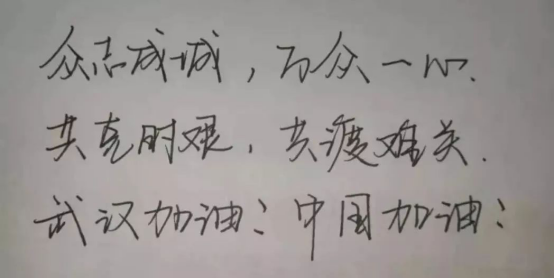 众志成城，万众一心.
共克时艰，共渡难关.
武汉加油！中国加油！